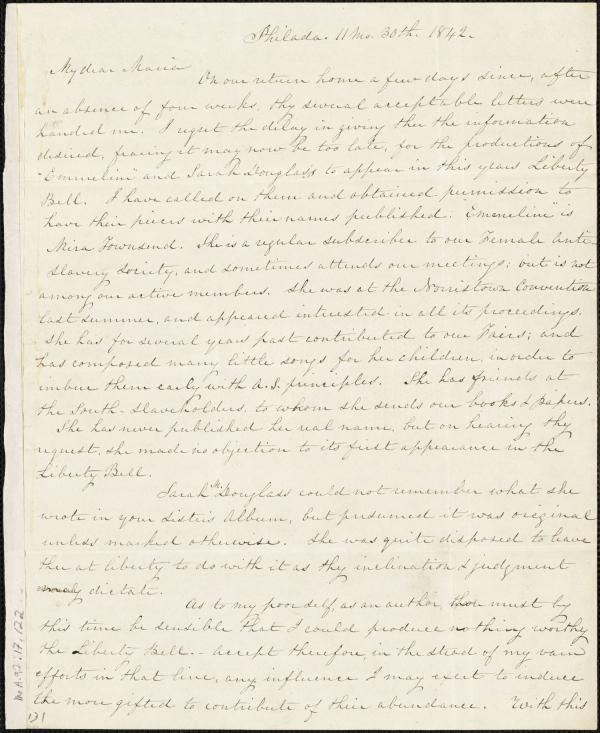 Philada. 11 Mo. 30th. 1842.
My dear Maria
On our return home a few days since, after
an absence of four weeks, thy several acceptable letters were
handed me. I regret the delay in giving thee the information
desired, fearing it may now be too late, for the productions of
"Emmeline" and Sarah Douglass to appear in this years Liberty
Bell. I have called on them and obtained permission to
have their pieces with their names published. "Emmeline" is
Mira Townsend. She is a regular subscriber to our Female Anti-
Slavery Society, and sometimes attends our meetings; but is not
among our active members. She was at the Norristown Convention
last summer, and appeared interested in all its proceedings.
She has for several years past contributed to our Fairs; and
has composed many little songs for her children, in order to
imbue them early with A.S. principles. She has friends at
the South - slaveholders, to whom she sends our books & papers.
She has never published her real name, but on hearing thy
request, she made no objection to its first appearance in the
Liberty Bell.
Sarah M. Douglass could not remember what she
wrote in your Sister's Album, but presumed it was original
unless marked otherwise. She was quite disposed to leave
thee at liberty to do with it as thy inclination & judgment
may dictate.
As to my poor self, as an author, thou must by
this time be sensible that I could produce nothing worthy
the Liberty Bell -- accept therefore, in the stead of my vain
efforts in that line, any influence I may exert to induce
the more gifted to contribute of their abundance. With this
Ms.A.9.2.17.122
121